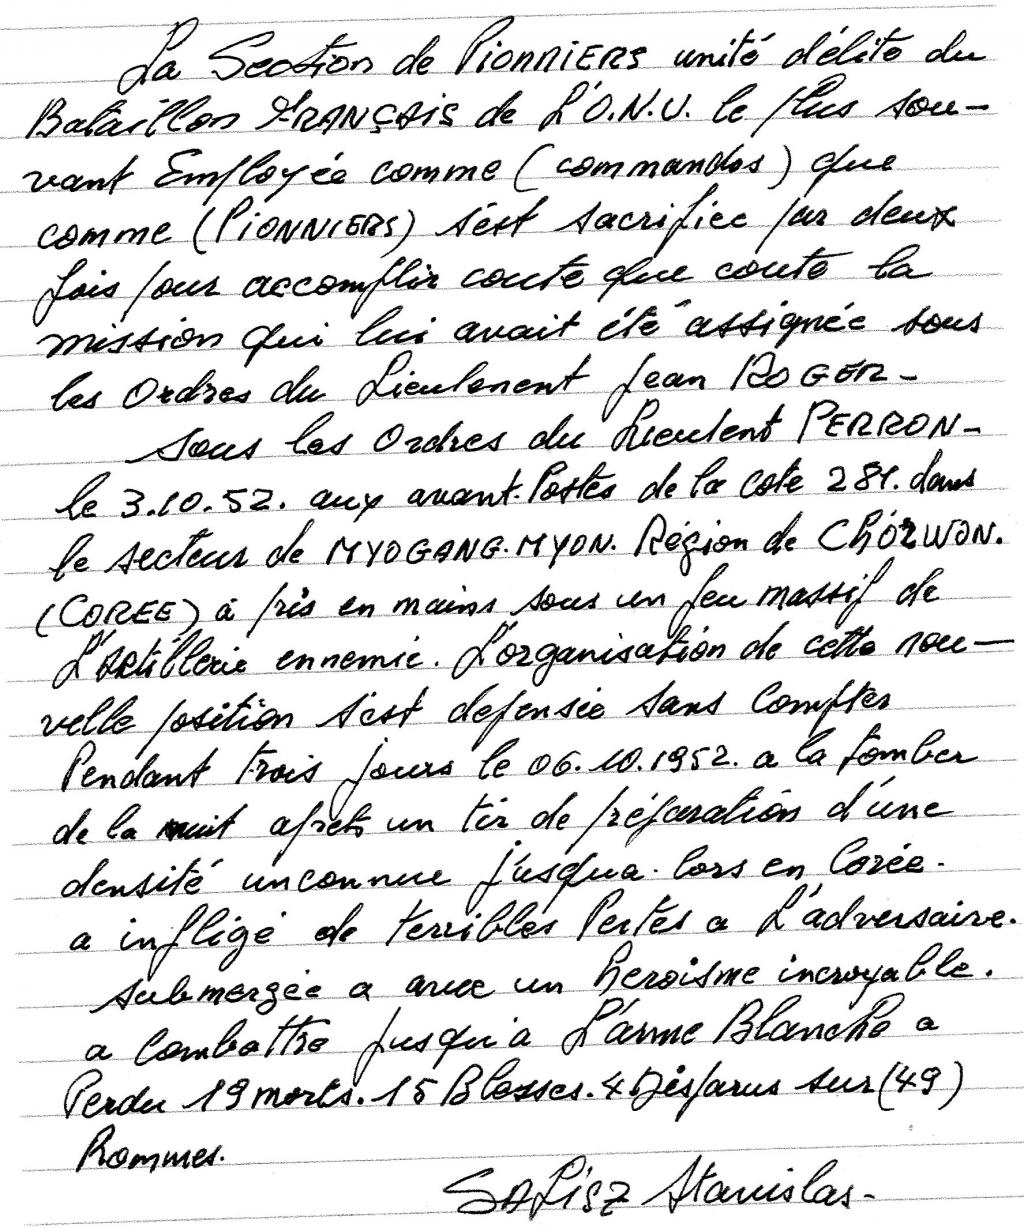 La Section de PIONNIERS unité délite du
Bataillon FRANÇAIS de L'O.N.U. le plus sou-
vant Employée comme (commandos) que
comme (PIONNIERS) s'est sacrifiée par deux
fois pour accomplir coute que coute la
mission qui lui avait été assignée sous
les Ordres du Lieutenent Jean ROGER-
sous les Ordres du Lieutent PERRON-
le 3.10.52. aux avant-Postes de la cote 281. dans
le secteur de MYOGANG-MYON. Région de CHORWON.
(COREE) à pris en mains sous un feu massif de
L'Artillerie ennemie. L'organisation de cette nou-
velle position s'est defensée sans Compter
Pendant trois jours le 06.10.1952. a la tomber
de la nuit aprets un tir de préparation d'une
densité unconnue j'usqua-lors en Corée.
a infligé de terribles Pertes a L'adversaire.
submergée a avec un heroïsme incroyable.
a Combattre jusqu'à L'arme Blanche a
Perdu 19 morts. 15 Blesses. 4 Disparus sur (49)
hommes.
SALISZ Stanislas-